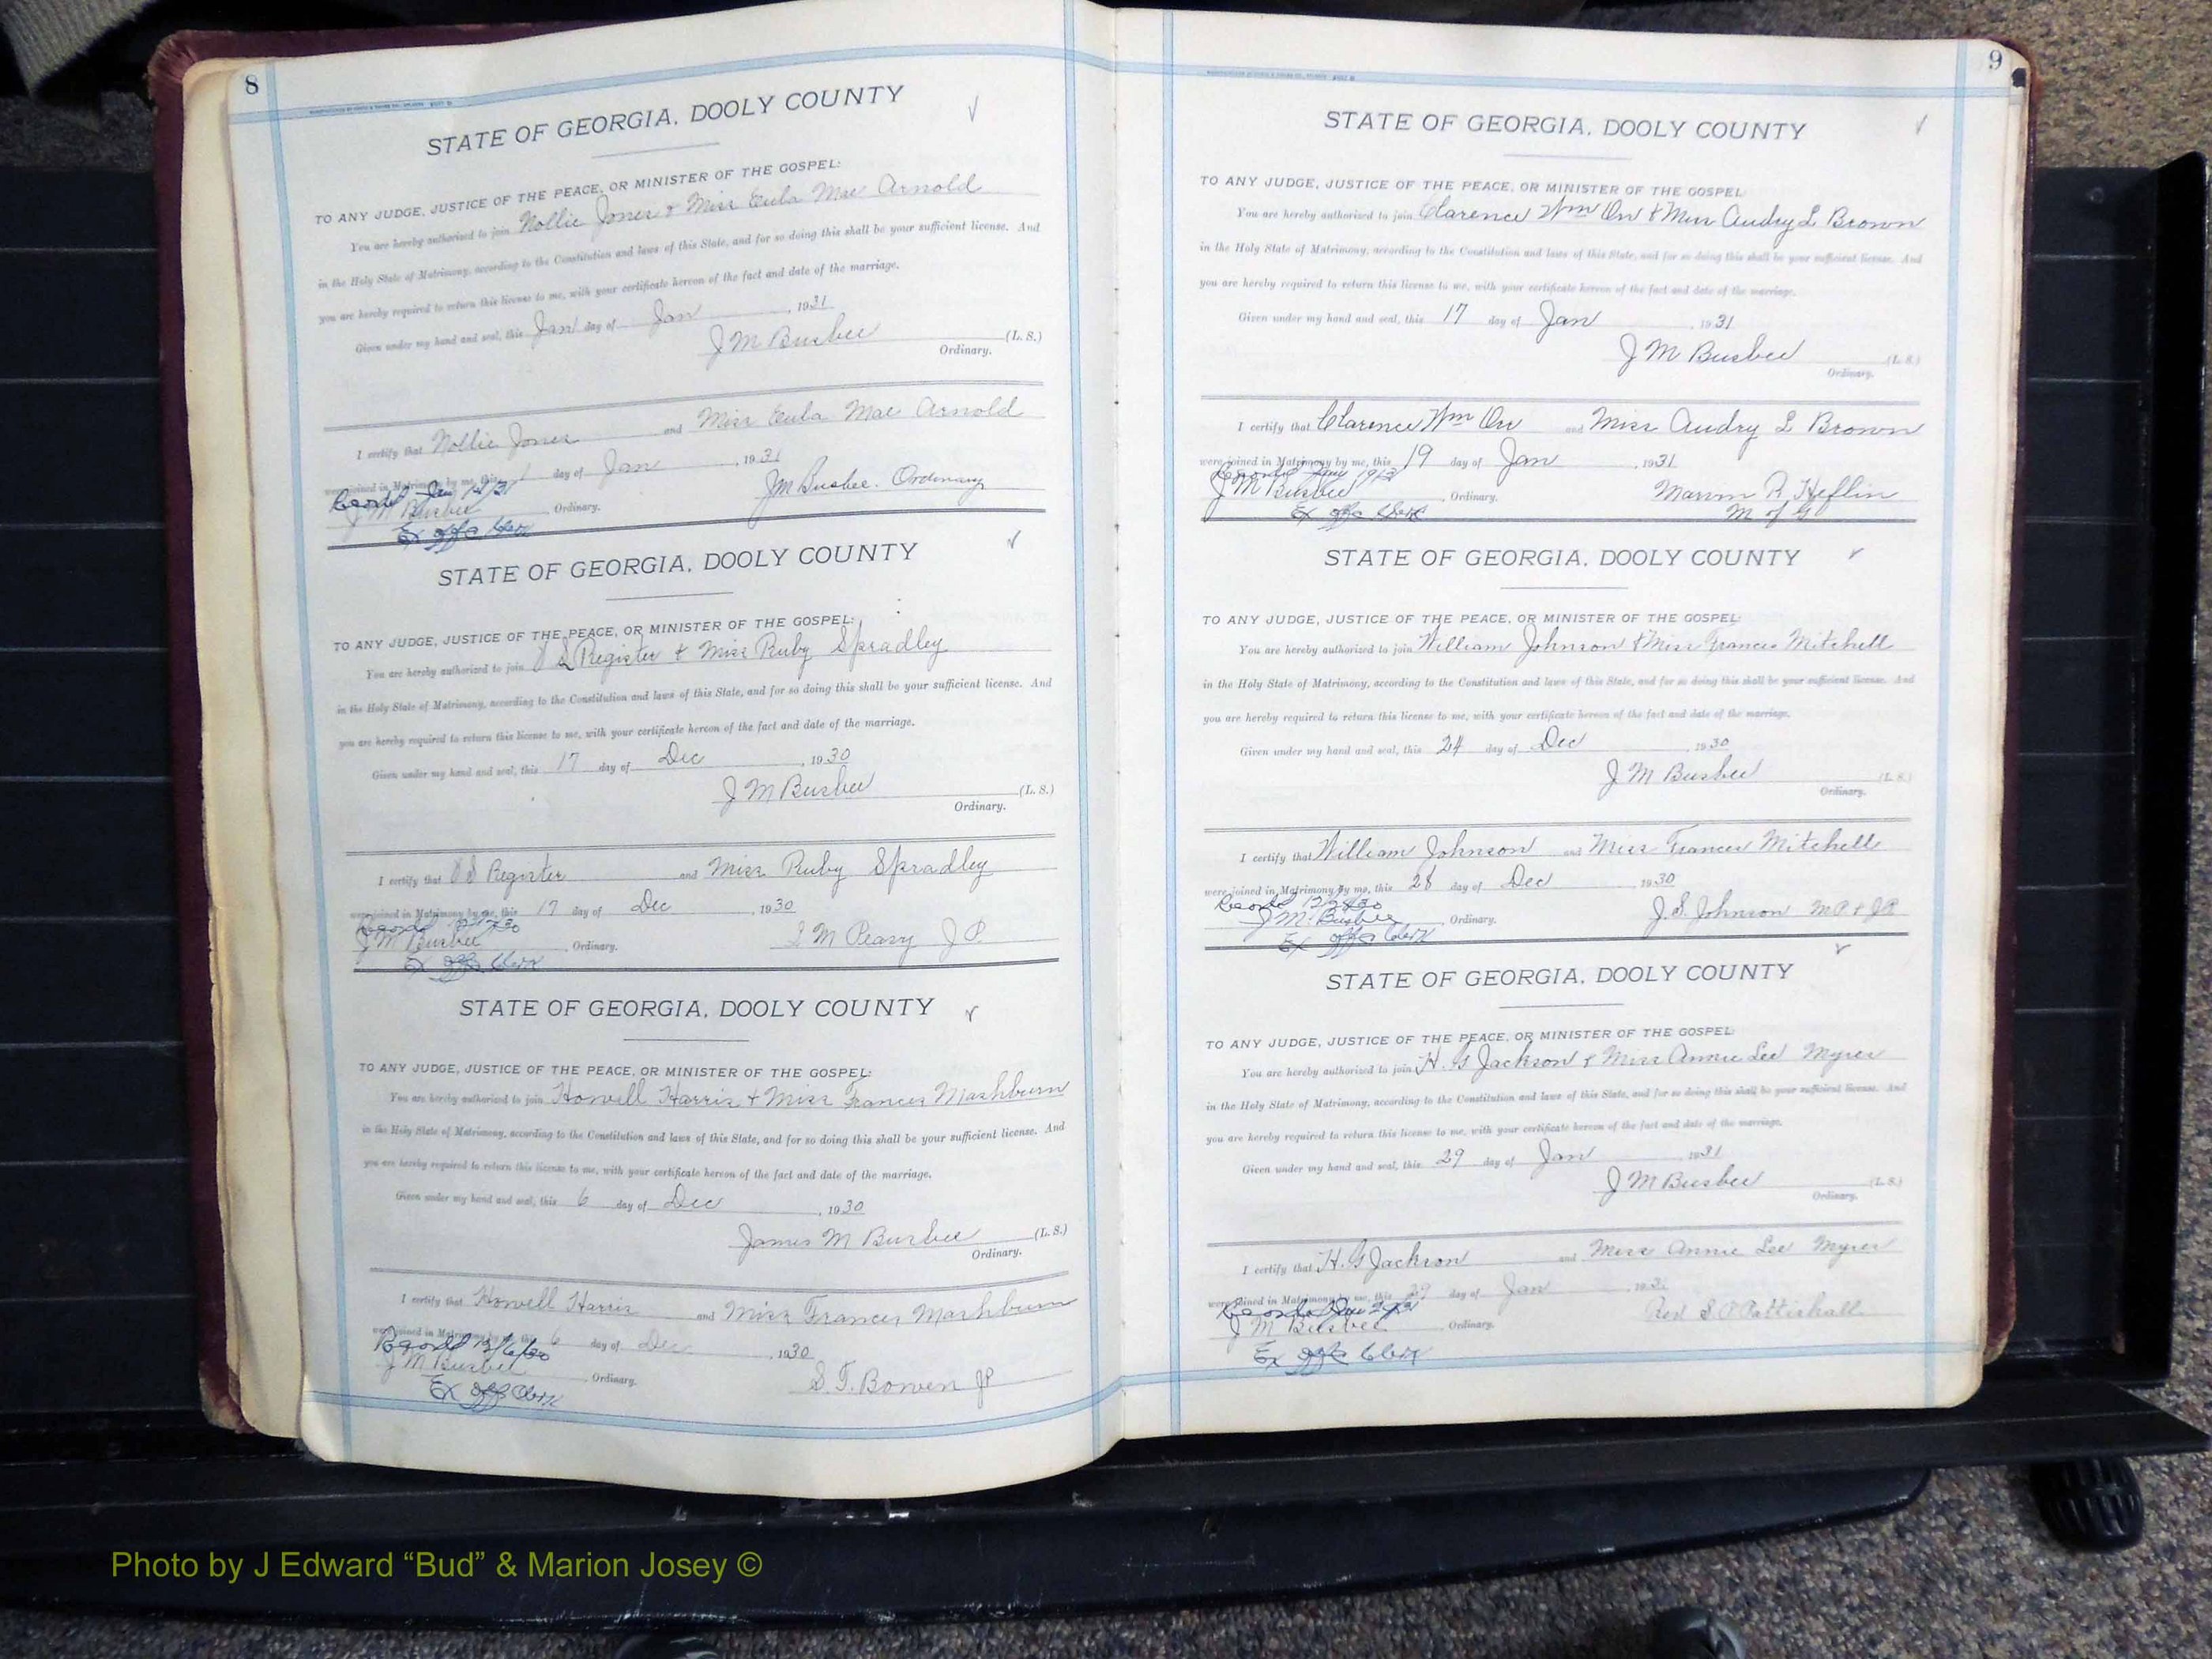 8
STATE OF GEORGIA, DOOLY COUNTY
TO ANY JUDGE, JUSTICE OF THE PEACE, OR MINISTER OF THE GOSPEL:
You are hereby authorized to join Nollie Jones & Miss Eula Mae Arnold
in the Holy State of Matrimony, according to the Constitution and laws of this State, and for so doing this shall be your sufficient license. And
you are hereby required to return this license to me, with your certificate hereon of the fact and date of the marriage.
Given under my hand and seal, this Jan day of Jan , 1931
J M Busbee (L. S.)
Ordinary.
I certify that Nollie Jones and Miss Eula Mae Arnold
were joined in Matrimony by me, this 1 day of Jan , 1931
Recorded Jan
J M Busbee , Ordinary. J M Busbee. Ordinary
Ex offo Clerk
STATE OF GEORGIA, DOOLY COUNTY
TO ANY JUDGE, JUSTICE OF THE PEACE, OR MINISTER OF THE GOSPEL:
You are hereby authorized to join S Register & Miss Ruby Spradley
in the Holy State of Matrimony, according to the Constitution and laws of this State, and for so doing this shall be your sufficient license. And
you are hereby required to return this license to me, with your certificate hereon of the fact and date of the marriage.
Given under my hand and seal, this 17 day of Dec , 1930
J M Busbee (L. S.)
Ordinary.
I certify that S Register and Miss Ruby Spradley
were joined in Matrimony by me, this 17 day of Dec , 1930
Recorded
J M Busbee , Ordinary. S M Peavy J P.
Ex offo Clerk
STATE OF GEORGIA, DOOLY COUNTY
TO ANY JUDGE, JUSTICE OF THE PEACE, OR MINISTER OF THE GOSPEL:
You are hereby authorized to join Howell Harris & Miss Frances Mashburn
in the Holy State of Matrimony, according to the Constitution and laws of this State, and for so doing this shall be your sufficient license. And
you are hereby required to return this license to me, with your certificate hereon of the fact and date of the marriage.
Given under my hand and seal, this 6 day of Dec , 1930
James M Busbee (L. S.)
Ordinary.
I certify that Howell Harris and Miss Frances Mashburn
were joined in Matrimony by me, this 6 day of Dec , 1930
Recorded 12/6/30
J M Busbee , Ordinary. S. T. Bowen JP
Ex offo Clerk
9
STATE OF GEORGIA, DOOLY COUNTY
TO ANY JUDGE, JUSTICE OF THE PEACE, OR MINISTER OF THE GOSPEL:
You are hereby authorized to join Clarence Wm Orr & Miss Audry L Brown
in the Holy State of Matrimony, according to the Constitution and laws of this State, and for so doing this shall be your sufficient license. And
you are hereby required to return this license to me, with your certificate hereon of the fact and date of the marriage.
Given under my hand and seal, this 17 day of Jan , 1931
J M Busbee (L. S.)
Ordinary.
I certify that Clarence Wm Orr and Miss Audry L Brown
were joined in Matrimony by me, this 19 day of Jan , 1931
Recorded Jan
J M Busbee , Ordinary. Marvin R. Heflin
Ex offo Clerk M of G
STATE OF GEORGIA, DOOLY COUNTY
TO ANY JUDGE, JUSTICE OF THE PEACE, OR MINISTER OF THE GOSPEL:
You are hereby authorized to join William Johnson & Miss Frances Mitchell
in the Holy State of Matrimony, according to the Constitution and laws of this State, and for so doing this shall be your sufficient license. And
you are hereby required to return this license to me, with your certificate hereon of the fact and date of the marriage.
Given under my hand and seal, this 24 day of Dec , 1930
J M Busbee (L. S.)
Ordinary.
I certify that William Johnson and Miss Frances Mitchell
were joined in Matrimony by me, this 28 day of Dec 1930
Recorded
J M. Busbee , Ordinary. J. S. Johnson
Ex offo Clerk
STATE OF GEORGIA, DOOLY COUNTY
TO ANY JUDGE, JUSTICE OF THE PEACE, OR MINISTER OF THE GOSPEL:
You are hereby authorized to join H. G Jackson & Miss Annie Lee Myres
in the Holy State of Matrimony, according to the Constitution and laws of this State, and for so doing this shall be your sufficient license. And
you are hereby required to return this license to me, with your certificate hereon of the fact and date of the marriage.
Given under my hand and seal, this 29 day of Jan , 1931
J M Busbee (L. S.)
Ordinary.
I certify that H. G Jackson and Miss Annie Lee Myres
were joined in Matrimony by me, this 29 day of Jan , 1931
Recorded Jan
J M Busbee , Ordinary. Rev S. O Pattishall
Ex offo Clerk
Photo by J Edward “Bud” & Marion Josey ©